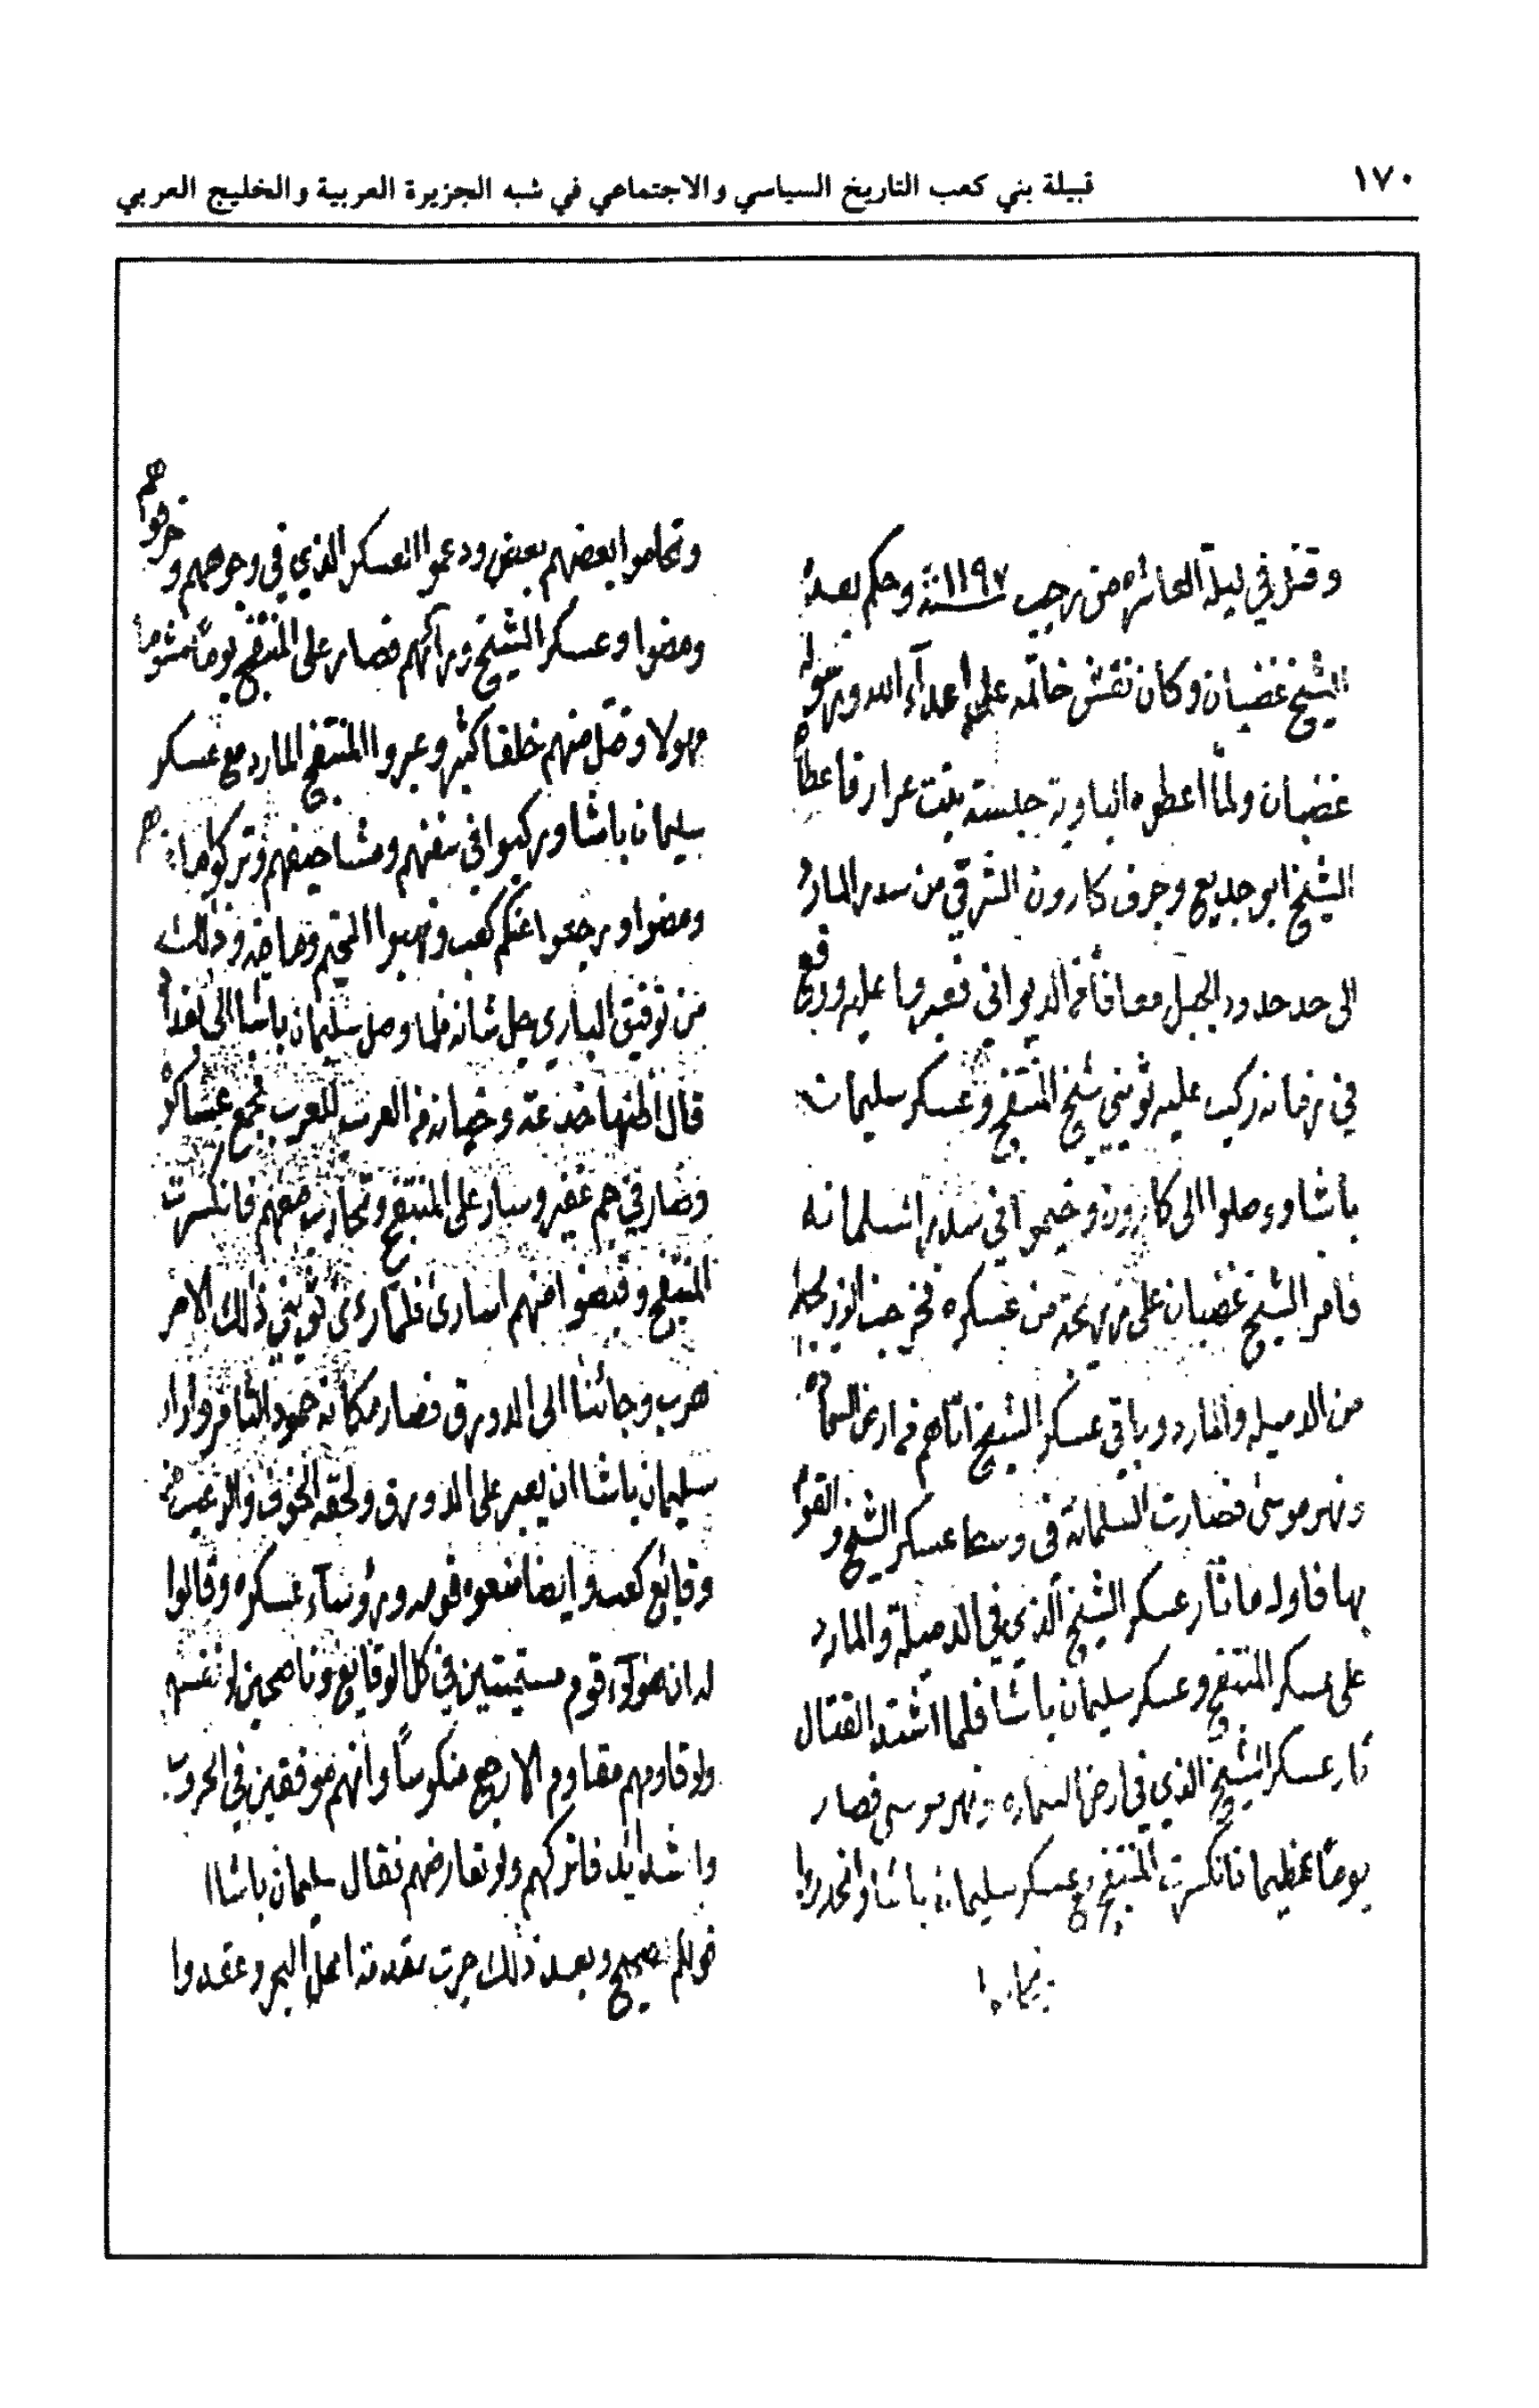 ١٧٠
قبيلة بني كعب التاريخ السياسي والاجتماعي في شبه الجزيرة العربية والخليج العربي
وقتل في ليلة العاشرة من رجب سنة ١١٩٧ وحكم بعده
الشيخ غضبان وكان نقش خاتمه على اعداء الله ورسوله
غضبان ولما اعطوه الباوية جلسته بنت عرار فاعطاه
الشيخ ابو جديع وجرف كارون الشرقي من سدر المارد
الى حد حدود الجبل معافا من الديواني فعبر وما عليه ووقع
في زمانه ركب عليه ثويني شيخ المنتفج وعسكر سليمان
باشا ووصلوا الى كارون وخيموا في سدر السلمانه
فامر الشيخ غضبان على من عسكره فخرجت
من الدميله والمارد وباقي عسكر الشيخ اتاهم من ارض السماره
ونهر موسى فصارت السلمانه في وسط عسكر الشيخ والقوم
بها فاول ما ثار عسكر الشيخ الذي في الدميلة والمارد
على عسكر المنتفج وعسكر سليمان باشا فلما اشتد القتال
ثار عسكر الشيخ الذي في ارض السماره ونهر موسى فصار
يوما عظيما فانكسرت المنتفج وعسكر سليمان باشا وانحدروا
وتحاموا بعضهم بعض ودعموا العسكر الذي في وجوههم وخرقوهم
ومضوا وعسكر الشيخ ورائهم فصار على المنتفج يوما مشوما
مهولا وقتل منهم خلقا كثير وعبروا المنتفج المارد مع عسكر
سليمان باشا وركبوا في سفنهم ومشاحيفهم وتركوا
ومضوا ورجعوا عنكم كعب ونهبوا المخيم وما فيه وذلك
من توفيق الباري جل شانه فلما وصل سليمان باشا الى بغداد
قال اظنها خدعة وخيانه من العرب للعرب فجمع عساكر
وصار في جم غفير وسار على المنتفج وتحارب معهم فانكسرت
المنتفج وقبضوا منهم اسارى فلما رءى ثويني ذلك الامر
هرب وجائنا الى الدورق فصار مكانه حمود الثامر واراد
سليمان باشا ان يعبر على الدورق ولحقه الخوف والرعب من
وقايع كعب وايضا منعوه قومه ورؤساء عسكره وقالوا
له ان هؤلاء قوم مستميتين في كل الوقايع وناصحين لانفسهم
ولو قاومهم مقاوم الا رجع منكوسا وانهم موفقين في الحروب
والشدايد فاتركهم ولا تعارضهم فقال سليمان باشا
قولكم صحيح وبعد ذلك جرت مقدمة اهل البحر وعقدوا